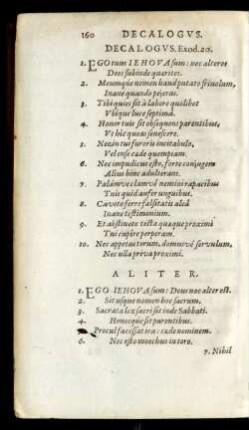 160 DECALOGVS.
DECALOGVS. Exod. 20.
1. EGO tum IEHOVA sum: nec alteros
Deos subinde quærites.
2. Meumque nomen haud putato frivolum,
Inane quando pejeras.
3. Tibi quies sit à labore quolibet
Vbique luce septima.
4. Honor tuis sit obsequens parentibus,
Vt hîc queas senescere.
5. Necan tus furoris incitabulo,
Vel ense cade quempiam.
6. Nec impudicus esto, forte conjugem
Alius bene adulterans.
7. Palàmve clamve nemini rapacibus
Tuis quid aufer unguibus.
8. Caveto ferre falsitatis aleâ
Inane testimonium.
9. Et abstineto tecta quæque proximi
Tui cupire perperam.
10. Nec appetas torum, domumve servulum,
Nec ulla priva proximi.
ALITER.
1. EGO IEHOVA sum: Deus nec alter est.
2. Sit usque nomen hoc sacrum.
3. Sacrata lex sacri sit inde Sabbati.
4. Honosque sit parentibus.
5. Procul facessat ira: cæde neminem.
6. Nec esto moechus in toro.
7. Nihil